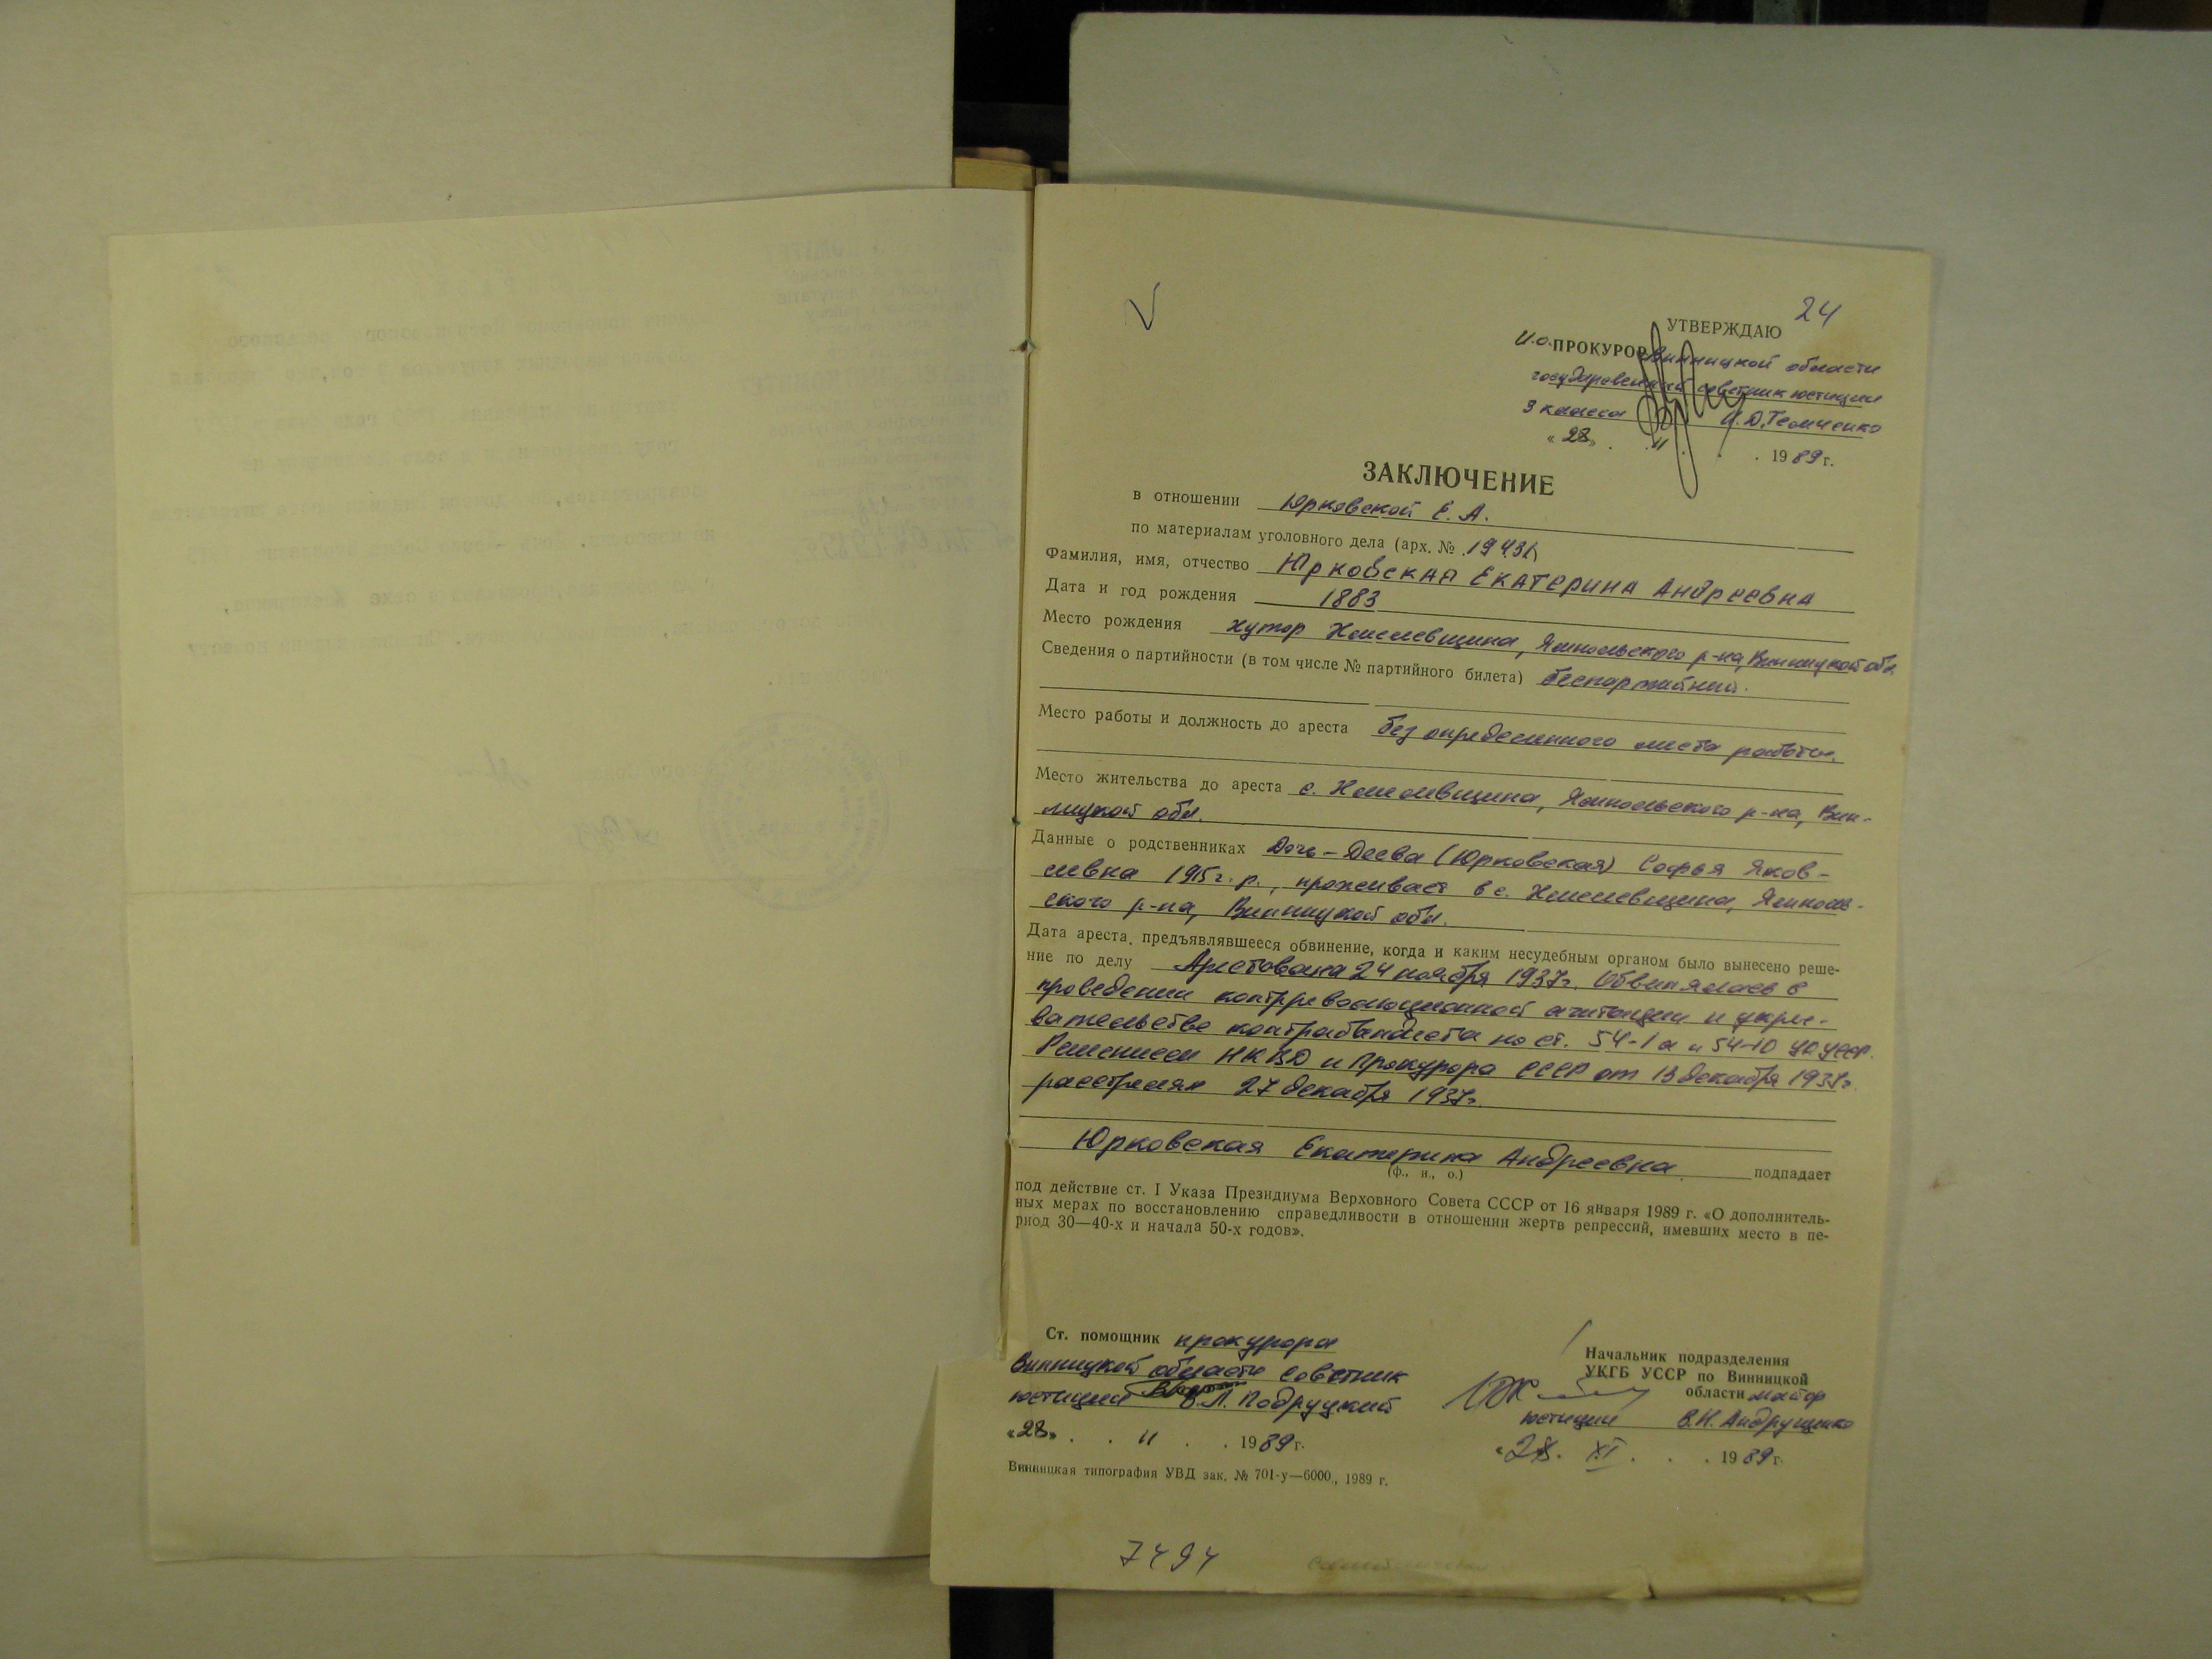 24
УТВЕРЖДАЮ
И.о. ПРОКУРОР Винницкой области
государственный советник юстиции
3 класса И.Д. Темченко
«28» . 11 . . . 1989 г.
ЗАКЛЮЧЕНИЕ
в отношении Юрковской Е. А.
по материалам уголовного дела (арх. №
Фамилия, имя, отчество Юрковская Екатерина Андреевна
Дата и год рождения 1883
Место рождения хутор Ямпольского р-на, Винницкой обл
Сведения о партийности (в том числе № партийного билета) беспартийный.
Место работы и должность до ареста без определенного места работы.
Место жительства до ареста с. Ямпольского р-на, Вин-
ницкой обл.
Данные о родственниках Дочь – Деева (Юрковская) Софья Яков-
левна 1915 г. р., проживает в с. Ямполь-
ского р-на, Винницкой обл.
Дата ареста, предъявлявшееся обвинение, когда и каким несудебным органом было вынесено реше-
ние по делу Арестована 24 ноября 1937г. Обвинялась в
проведении контрреволюционной агитации и укры-
вательстве контрабандиста по ст. 54-1а и 54-10 УК УССР.
Решением НКВД и Прокурора СССР от 13 декабря 1937г.
расстрелян 27 декабря 1937г.
Юрковская Екатерина Андреевна подпадает
(ф., и., о.)
под действие ст. I Указа Президиума Верховного Совета СССР от 16 января 1989 г. «О дополнитель-
ных мерах по восстановлению справедливости в отношении жертв репрессий, имевших место в пе-
риод 30—40-х и начала 50-х годов».
Ст. помощник прокурора
Винницкой области советник
юстиции В.Л. Подруцкий
«28» . . 11 . . 1989 г.
Начальник подразделения
УКГБ УССР по Винницкой
области майор
юстиции В.Н. Андрущенко
«28. XI . . . 1989 г.
Винницкая типография УВД зак. № 701-у—6000, 1989 г.
7494